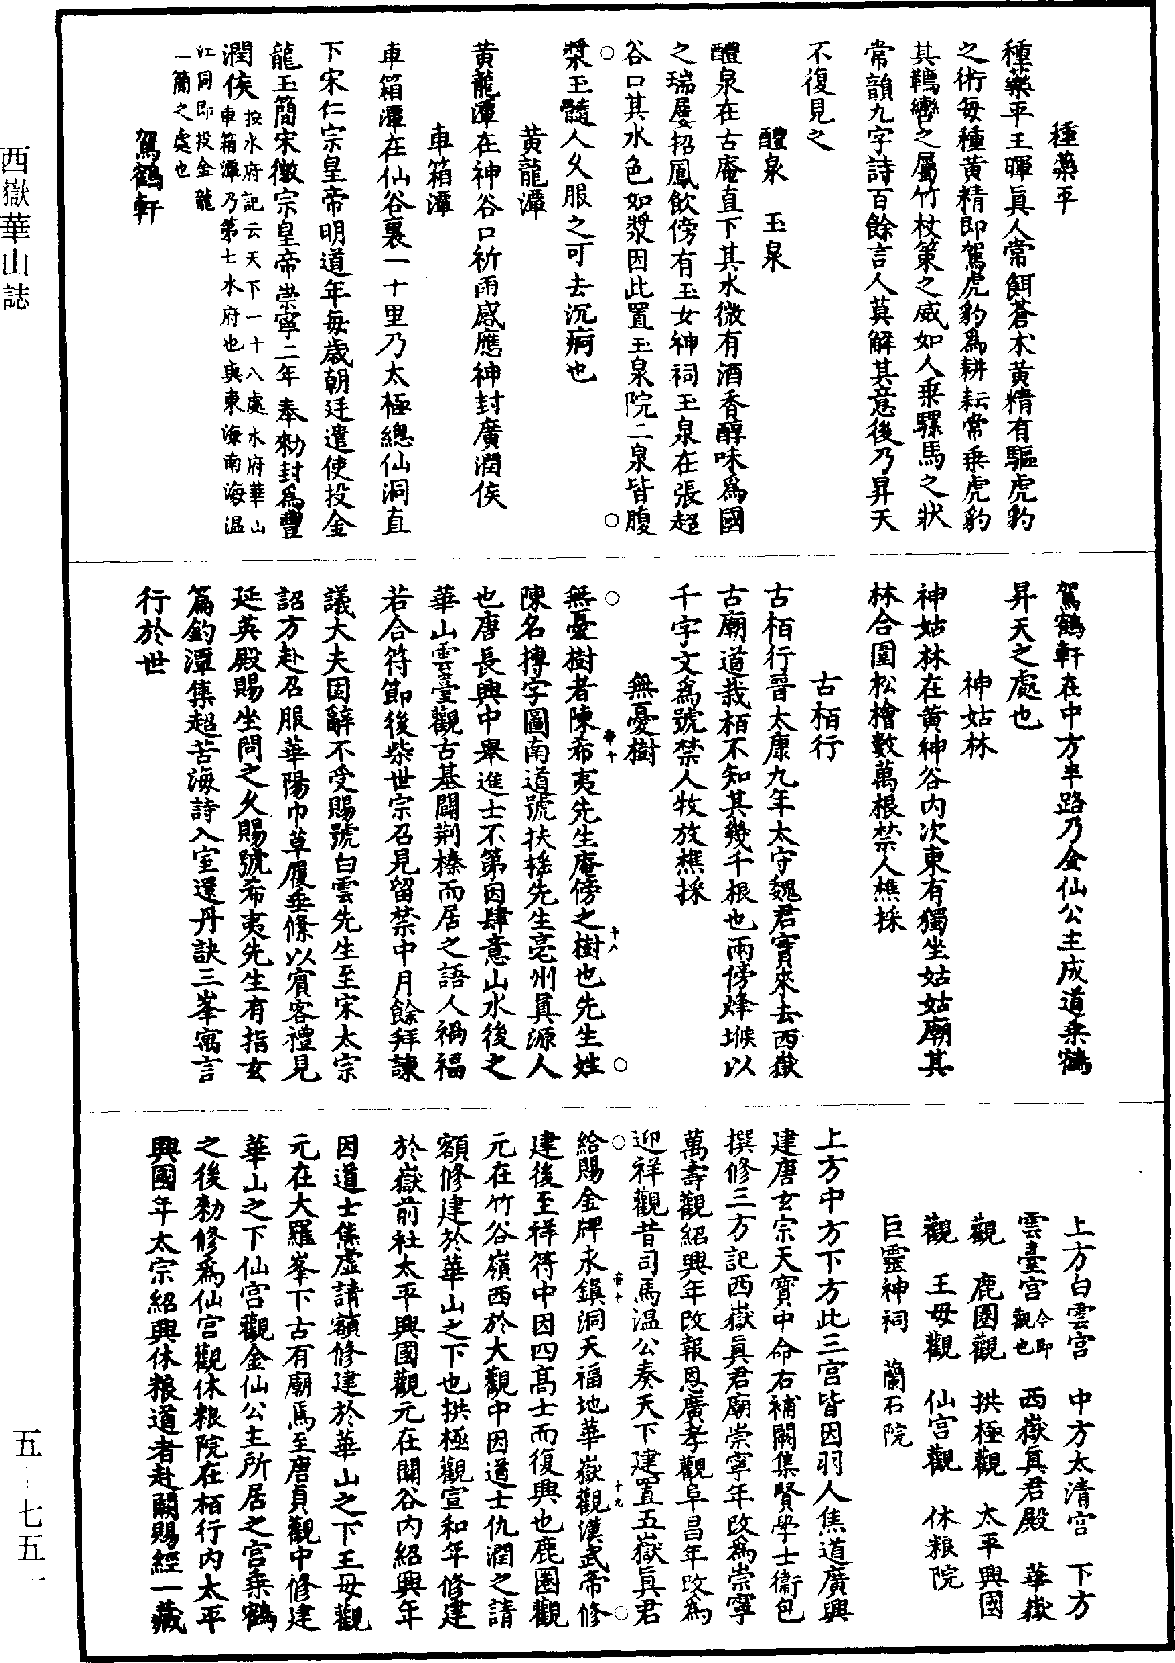 種藥平
種藥平王暉眞人常餌蒼朮黃精有驅虎豹
之術每種黃精即駕虎豹爲耕耘常乘虎豹
其韉轡之屬竹杖策之威如人乘騾馬之狀
常韻九字詩百餘言人莫解其意後乃昇天
不復見之
醴泉　玉泉
醴泉在古庵直下其水微有酒香醇味爲國
之瑞屢招鳳飲傍有玉女神祠玉泉在張超
谷口其水色如漿因此置玉泉院二泉皆腹
漿玉髓人久服之可去沉痾也
黃龍潭
黃龍潭在神谷口祈雨感應神封廣潤侯
車箱潭
車箱潭在仙谷裏一十里乃太極總仙洞直
下宋仁宗皇帝明道年每歲朝廷遣使投金
龍玉簡宋徽宗皇帝崇寧二年奉勑封爲豐
潤侯按水府記云天下一十八處水府華山
車箱潭乃第七水府也與東海南海温
江同即投金龍
一簡之處也
駕鶴軒
駕鶴軒在中方半路乃金仙公主成道乘鶴
昇天之處也
神姑林
神姑林在黃神谷內次東有獨坐姑姑廟其
林合圍松檜數萬根禁人樵採
古栢行
古栢行晉太康九年太守魏君實來去西嶽
古廟道栽栢不知其幾千根也兩傍烽堠以
千字文爲號禁人牧放樵採
無憂樹
無憂樹者陳希夷先生庵傍之樹也先生姓
陳名摶字圖南道號扶搖先生亳州眞源人
也唐長興中舉進士不第因肆意山水後之
華山雲臺觀古基闢荆榛而居之語人禍福
若合符節後柴世宗召見留禁中月餘拜諫
議大夫因辭不受賜號白雲先生至宋太宗
詔方赴召服華陽巾草履垂絛以賓客禮見
延英殿賜坐問之久賜號希夷先生有指玄
篇釣潭集超苦海詩入室還丹訣三峯寓言
行於世
上方白雲宮　中方太清宮　下方
雲臺宮今即觀也　西嶽眞君殿　華嶽
觀　鹿圈觀　拱極觀　太平興國
觀　王母觀　仙宮觀　休粮院
巨靈神祠　蘭石院
上方中方下方此三宮皆因羽人焦道廣興
建唐玄宗天寶中命右補闕集賢學士衞包
撰修三方記西嶽眞君廟崇寧年改爲崇寧
萬壽觀紹興年改報恩廣孝觀阜昌年改爲
迎祥觀昔司馬温公奏天下建置五嶽眞君
給賜金牌永鎭洞天福地華嶽觀漢武帝修
建後至祥符中因四髙士而復興也鹿圈觀
元在竹谷嶺西於大觀中因道士仇潤之請
額修建於華山之下也拱極觀宣和年修建
於嶽前社太平興國觀元在關谷內紹興年
因道士焦虛請額修建於華山之下王母觀
元在大羅峯下古有廟焉至唐貞觀中修建
華山之下仙宮觀金仙公主所居之宮乘鶴
之後勑修爲仙宮觀休粮院在栢行內太平
興國年太宗紹興休粮道者赴闕賜經一藏
西嶽華山誌
五—七五一